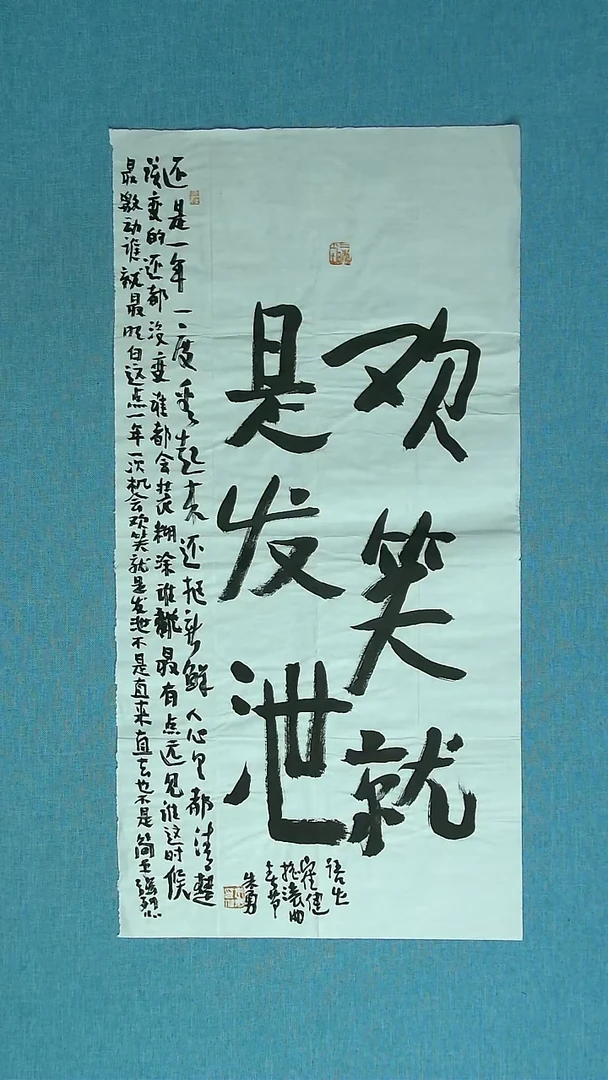 欢笑就
是发泄
语出
崔健
摇滚曲
春节
朱勇
还是一年一度看起来还挺新鲜人心里都清楚
该变的还都没变谁都会装糊涂谁就最有点远见谁这时候
最激动谁就最明白这点一年一次机会欢笑就是发泄不是直来直去也不是简单强烈